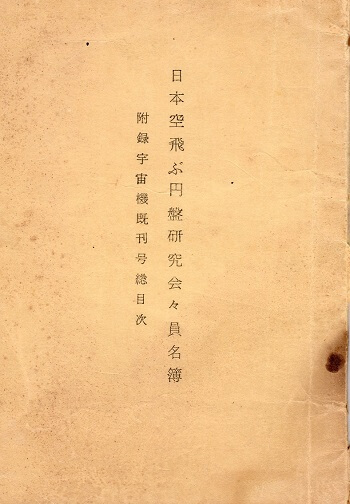 日本空飛ぶ円盤研究会々員名簿
附録宇宙機既刊号総目次